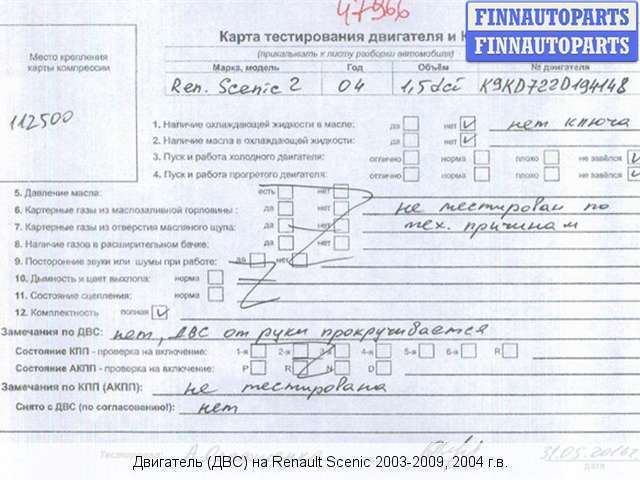 47966
FINNAUTOPARTS
FINNAUTOPARTS
Карта тестирования двигателя и К
(прикалывать к листу разборки автомобиля)
Место крепления
карты компрессии
Марка, модель Год Объём № двигателя
Ren. Scenic 2 04 1,5 dci K9KD722D194148
112500
1. Наличие охлаждающей жидкости в масле: да нет нет ключа
2. Наличие масла в охлаждающей жидкости: да нет
3. Пуск и работа холодного двигателя: отлично норма плохо не завёлся
4. Пуск и работа прогретого двигателя: отлично норма плохо не завёлся
5. Давление масла: есть нет
6. Картерные газы из маслозаливной горловины : да нет не тестирован по
7. Картерные газы из отверстия масляного щупа: да нет мех. причинам
8. Наличие газов в расширительном бачке: да нет
9. Посторонние звуки или шумы при работе: да нет
10. Дымность и цвет выхлопа: норма
11. Состояние сцепления: норма
12. Комплектность полная
Замечания по ДВС: нет, ДВС от руки прокручивается
Состояние КПП - проверка на включение: 1-я 2-я 3-я 4-я 5-я 6-я R
Состояние АКПП - проверка на включение: P R N D
Замечания по КПП (АКПП): не тестирована
Снято с ДВС (по согласованию!): нет
31.05.2016г
Двигатель (ДВС) на Renault Scenic 2003-2009, 2004 г.в.